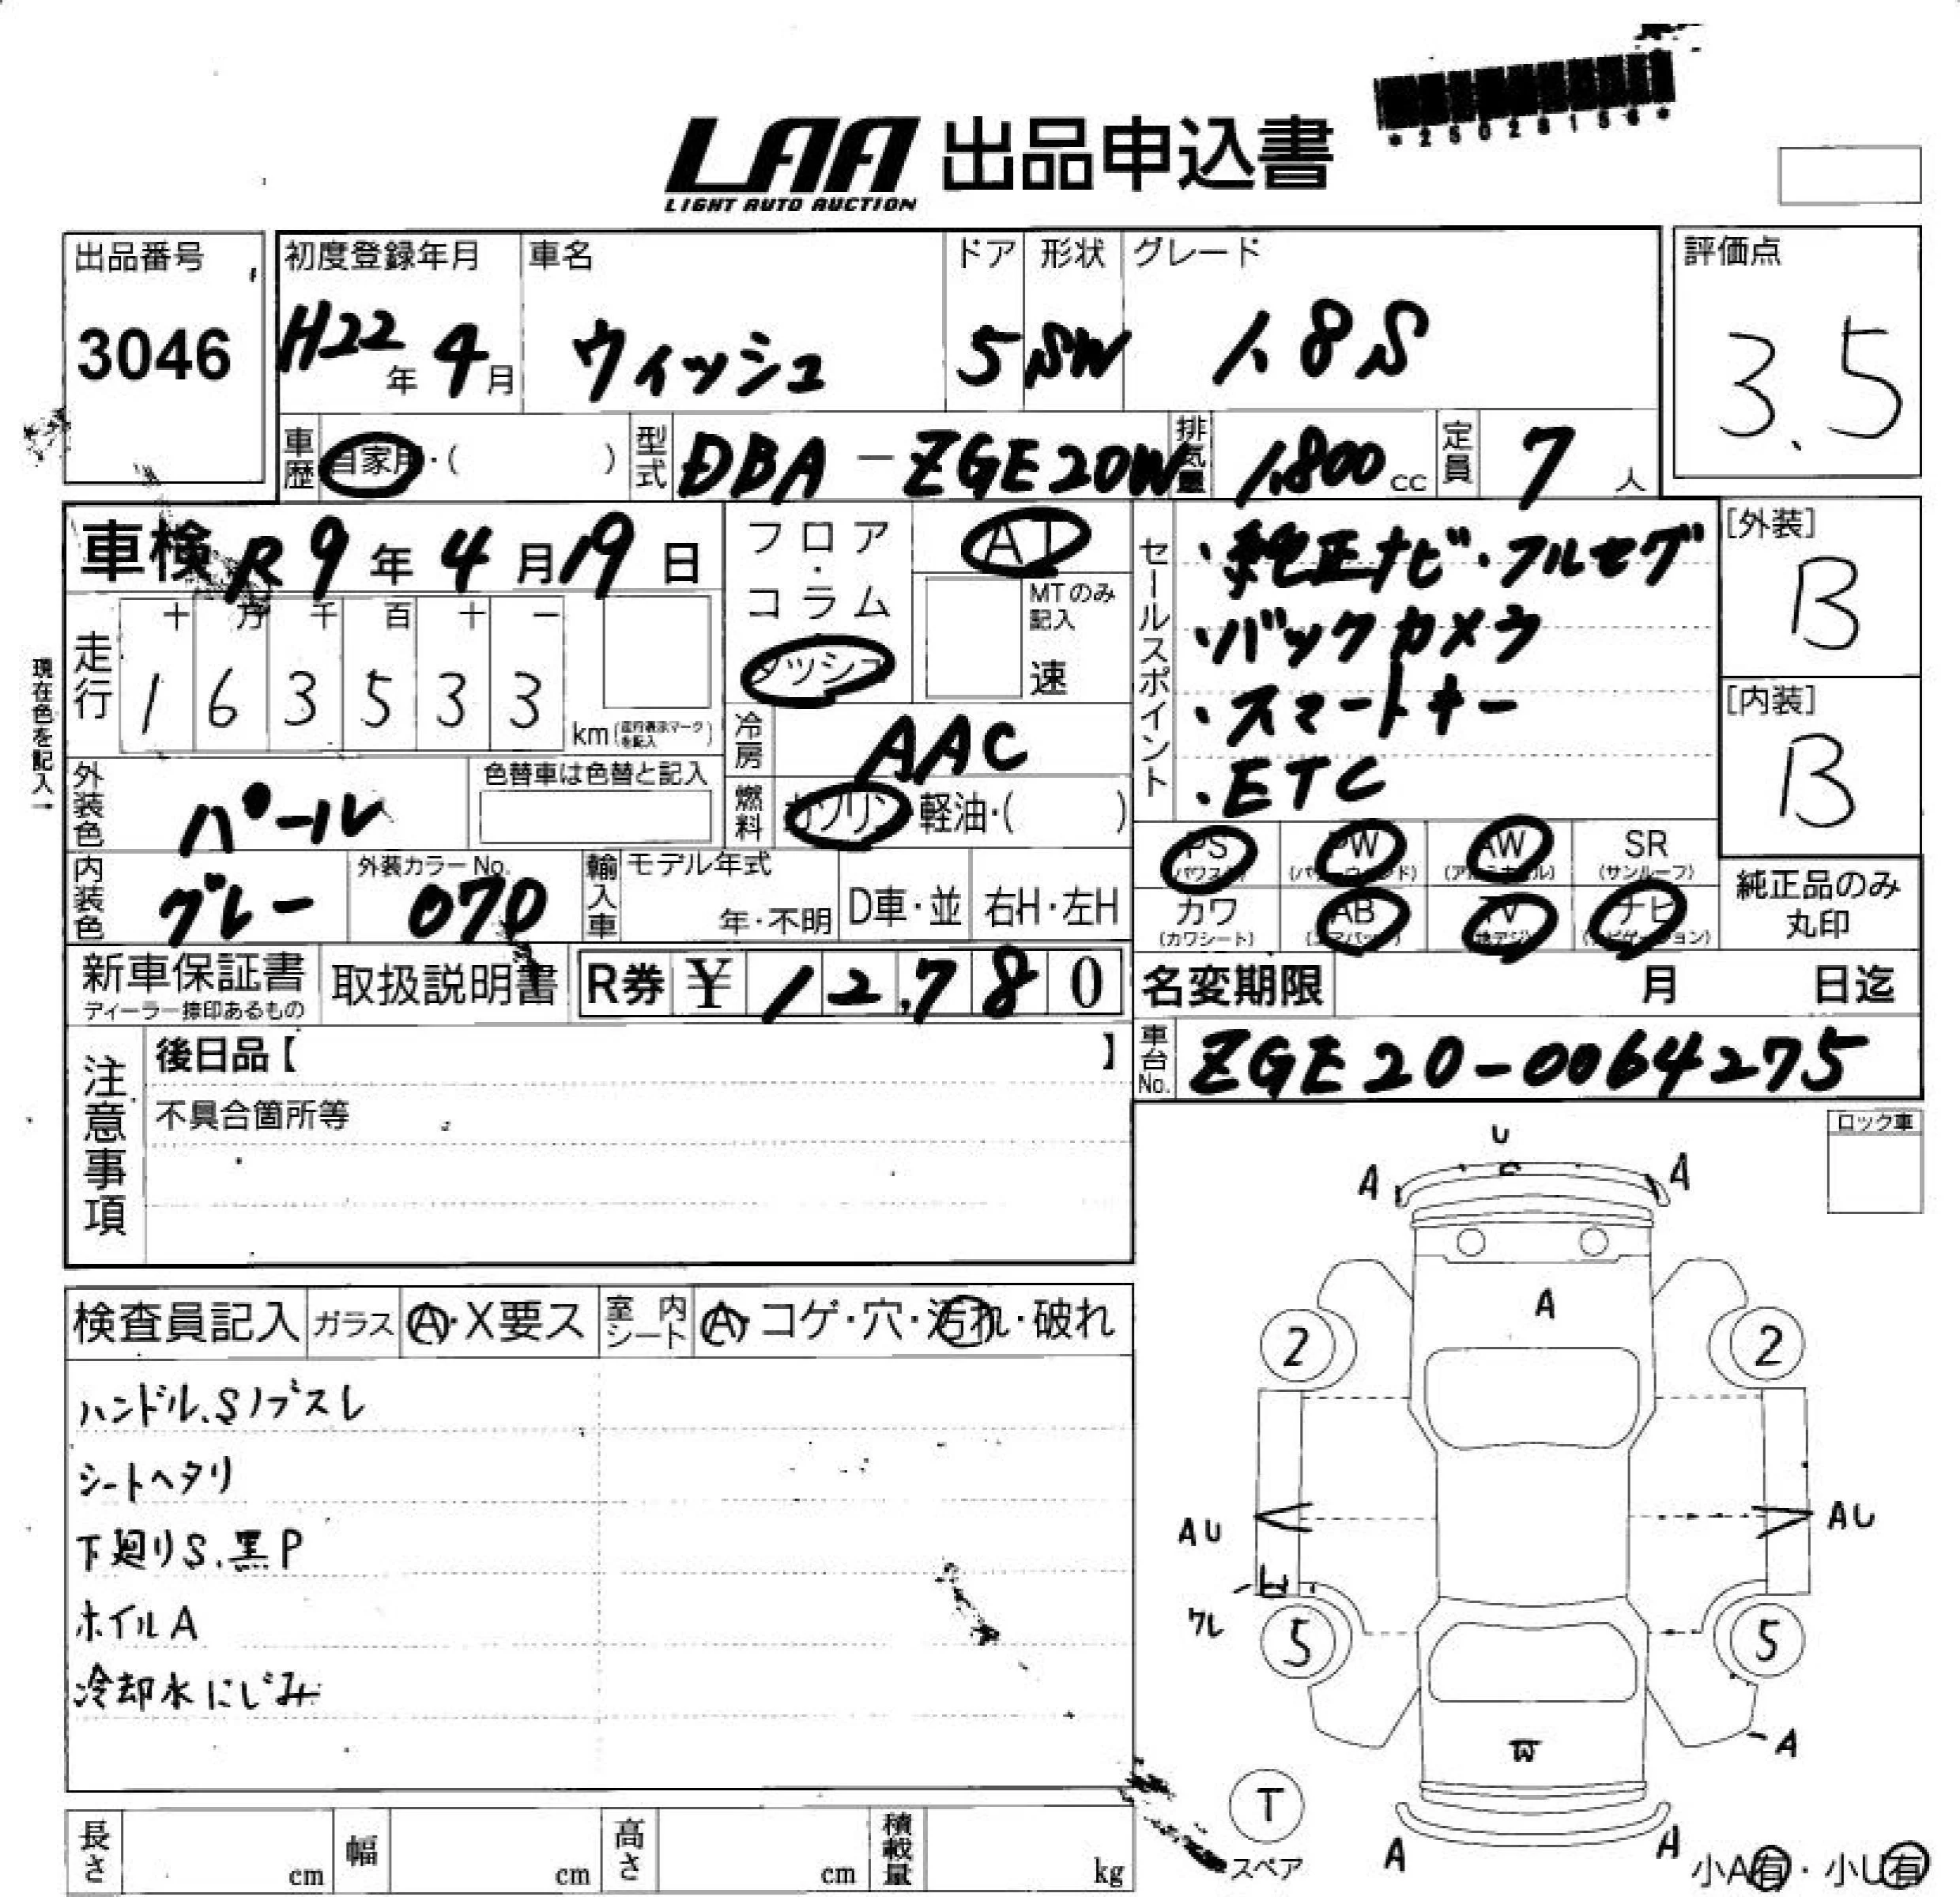 *25028156*
LAA 出品申込書
LIGHT AUTO AUCTION
出品番号 初度登録年月 車名 ドア 形状 グレード 評価点
3046 H22年 4月 ウィッシュ 5 SW 1.8S 3.5
車歴 自家用・( ) 型式 DBA-ZGE20W 排気量 1,800 cc 定員 7 人
車検 R9年 4月 19日 フロア・コラム ダッシュ AT
MTのみ記入 速
走行 十 万 千 百 十 一
1 6 3 5 3 3 km (走行表示マークを記入)
現在色を記入→
冷房 AAC
外装色 パール 色替車は色替と記入
燃料 ガソリン・軽油・( )
セールスポイント
・純正ナビ・フルセグ
・バックカメラ
・スマートキー
・ETC
[外装]
B
[内装]
B
PS (パワステ) PW (パワーウィンド) AW (アルミホイル) SR (サンルーフ)
カワ (カワシート) AB (エアバッグ) TV (地デジ) ナビ (ナビゲーション)
純正品のみ
丸印
内装色 グレー 外装カラーNo. 070 輸入車 モデル年式 年・不明 D車・並 右H・左H
新車保証書 取扱説明書 R券 ¥ 12,780 名変期限 月 日迄
ディーラー捺印あるもの
車台No. ZGE20-0064275
注意事項
後日品【 】
不具合箇所等
ロック車
検査員記入 ガラス A・X要ス 室内シート A・コゲ・穴・汚れ・破れ
ハンドル、Sノブスレ
シートヘタリ
下廻りS、黒P
ホイルA
冷却水にじみ
U
A A
A
2 2
AU AU
ワレ
5 5
A
W
T
スペア
A A
小A有・小U有
長さ cm 幅 cm 高さ cm 積載量 kg